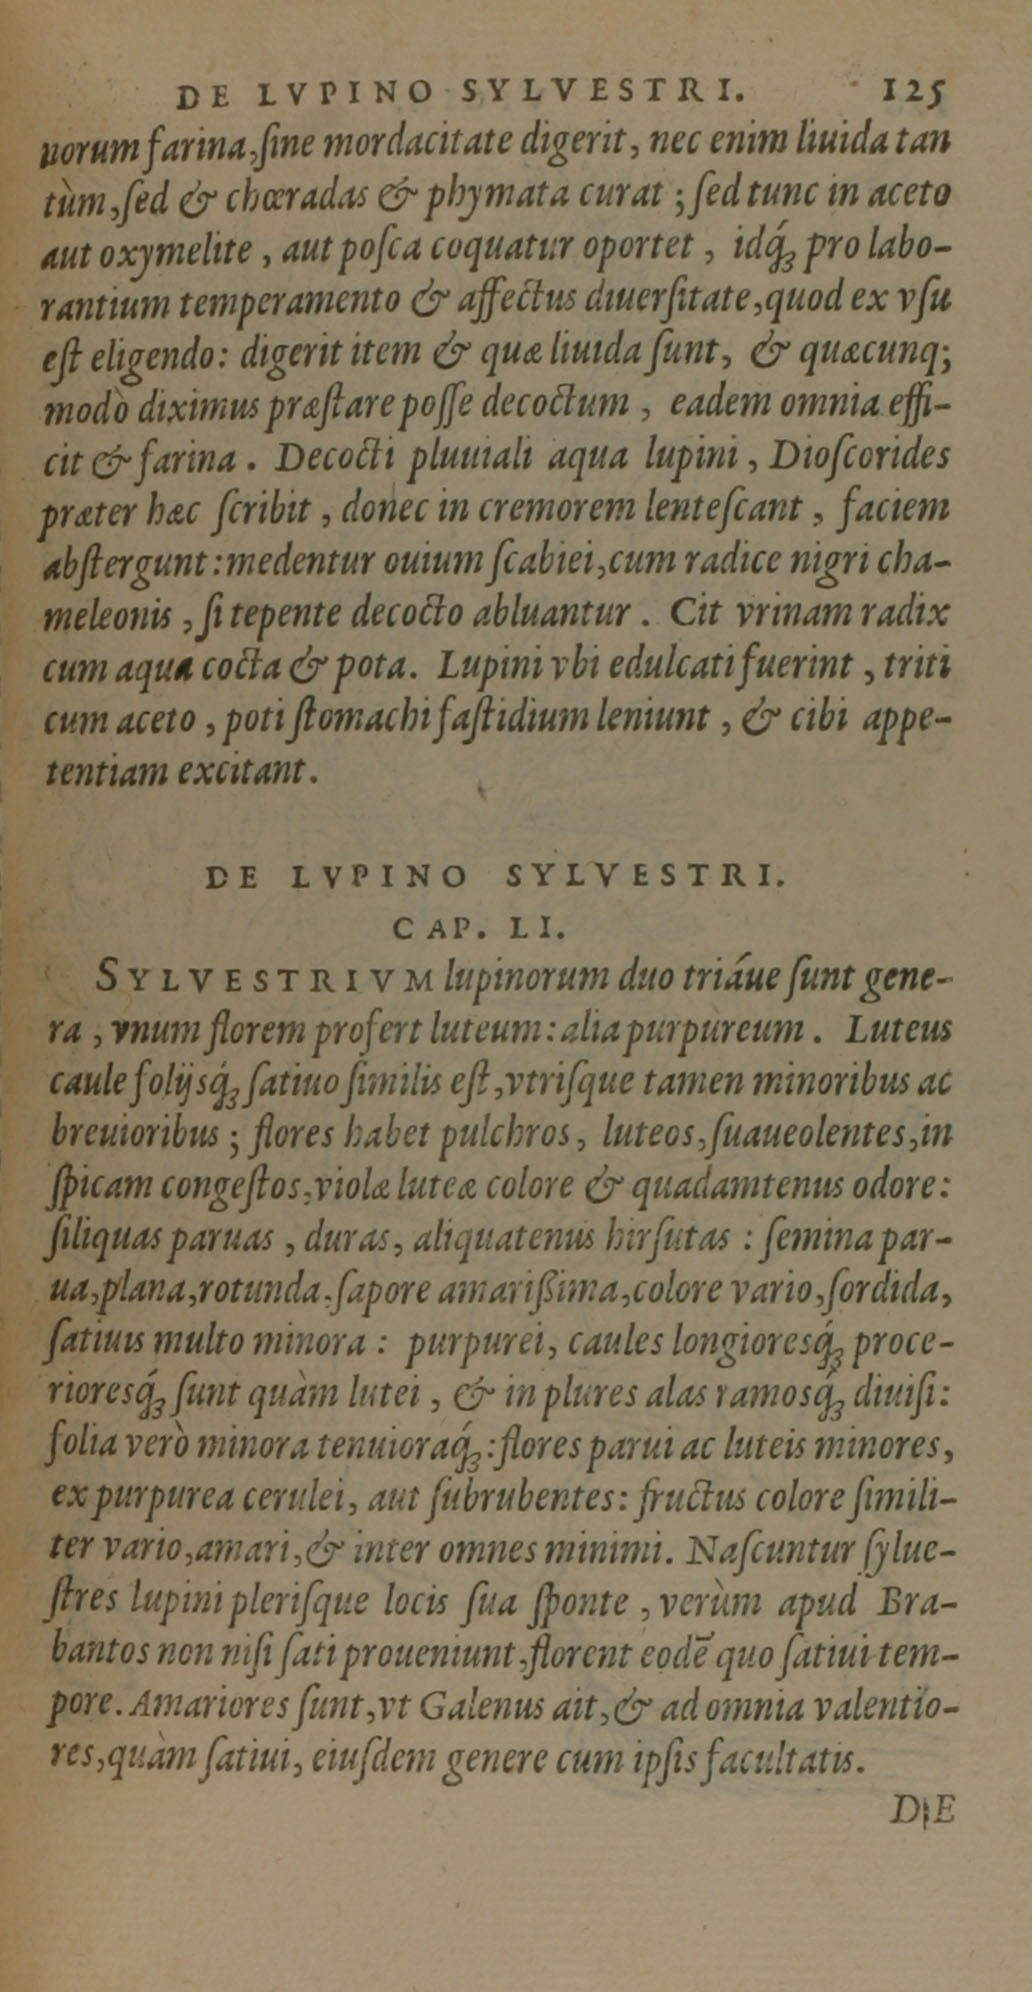 DE LVPINO SYLVESTRI. 125
uorum farina, ſine mordacitate digerit, nec enim liuida tan
tùm, ſed & chœradas & phymata curat; ſed tunc in aceto
aut oxymelite, aut poſca coquatur oportet, idq́ꝫ pro labo-
rantium temperamento & affectus diuerſitate, quod ex vſu
eſt eligendo: digerit item & quæ liuida ſunt, & quæcunq;
modò diximus præſtare poſſe decoctum, eadem omnia effi-
cit & farina. Decocti pluuiali aqua lupini, Dioſcorides
præter hæc ſcribit, donec in cremorem lenteſcant, faciem
abſtergunt: medentur ouium ſcabiei, cum radice nigri cha-
meleonis, ſi tepente decocto abluantur. Cit vrinam radix
cum aqua cocta & pota. Lupini vbi edulcati fuerint, triti
cum aceto, poti ſtomachi faſtidium leniunt, & cibi appe-
tentiam excitant.
DE LVPINO SYLVESTRI.
CAP. LI.
SYLVESTRIVM lupinorum duo triáue ſunt gene-
ra, vnum florem profert luteum: alia purpureum. Luteus
caule folijsq́ꝫ ſatiuo ſimilis eſt, vtriſque tamen minoribus ac
breuioribus; flores habet pulchros, luteos, ſuaueolentes, in
ſpicam congeſtos, violæ luteæ colore & quadamtenus odore:
ſiliquas paruas, duras, aliquatenus hirſutas: ſemina par-
ua, plana, rotunda, ſapore amariſſima, colore vario, ſordida,
ſatiuis multo minora: purpurei, caules longioresq́ꝫ proce-
rioresq́ꝫ ſunt quàm lutei, & in plures alas ramosq́ꝫ diuiſi:
folia verò minora tenuioraq́ꝫ: flores parui ac luteis minores,
ex purpurea cerulei, aut ſubrubentes: fructus colore ſimili-
ter vario, amari, & inter omnes minimi. Naſcuntur ſylue-
ſtres lupini pleriſque locis ſua ſponte, verùm apud Bra-
bantos non niſi ſati proueniunt, florent eodē quo ſatiui tem-
pore. Amariores ſunt, vt Galenus ait, & ad omnia valentio-
res, quàm ſatiui, eiuſdem genere cum ipſis facultatis.
DE